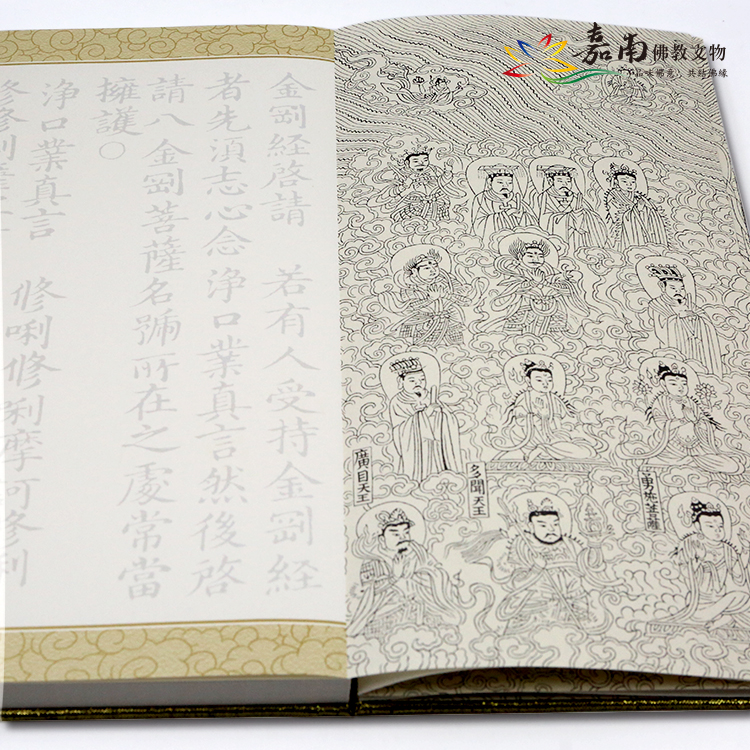 嘉南佛教文物
品味佛意，共結佛緣
金剛経啓請　若有人受持金剛経
者先湏志心念浄口業真言然後啓
請八金剛菩薩名號所在之處常當
擁護○
浄口業真言　修唎修唎摩訶修唎
修修唎薩
多聞天王
廣目天王